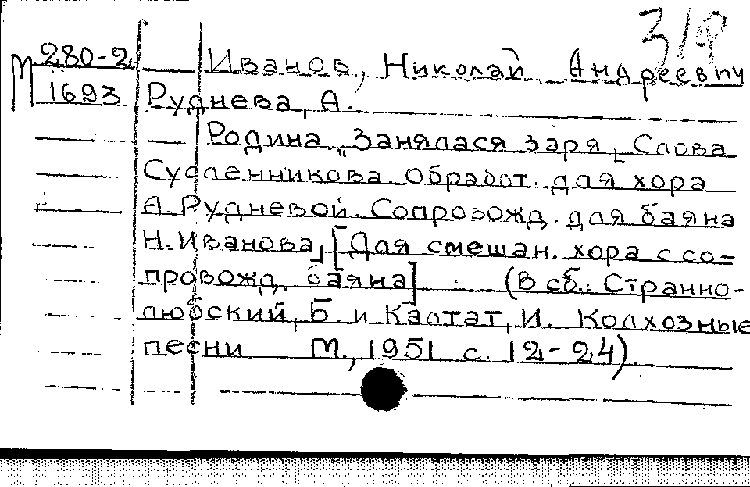 318
М 280-2 Иванов, Николай Андреевич
1693 Руднева, А.
Родина „Занялася заря, Слова
Сусленникова. Обработ. для хора
А. Рудневой. Сопровожд. для баяна
Н. Иванова, [Для смешан. хора с со-
провожд. баяна] (В сб.: Странно-
любский, Б. и Калтат, И. Колхозные
песни М., 1951 с. 12-24).